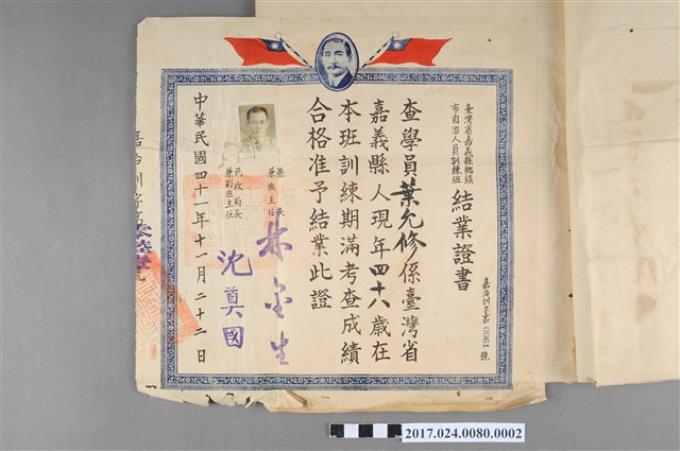 臺灣省嘉義縣鄉鎮
市自治人員訓練班
結業證書
嘉治訓字第0061號
查學員葉允修係臺灣省
嘉義縣人現年四十八歲在
本班訓練期滿考查成績
合格准予結業此證
縣長
兼班主任
林金生
民政局長
兼副班主任
沈奠國
中華民國四十一年十一月二十二日
2017.024.0080.0002